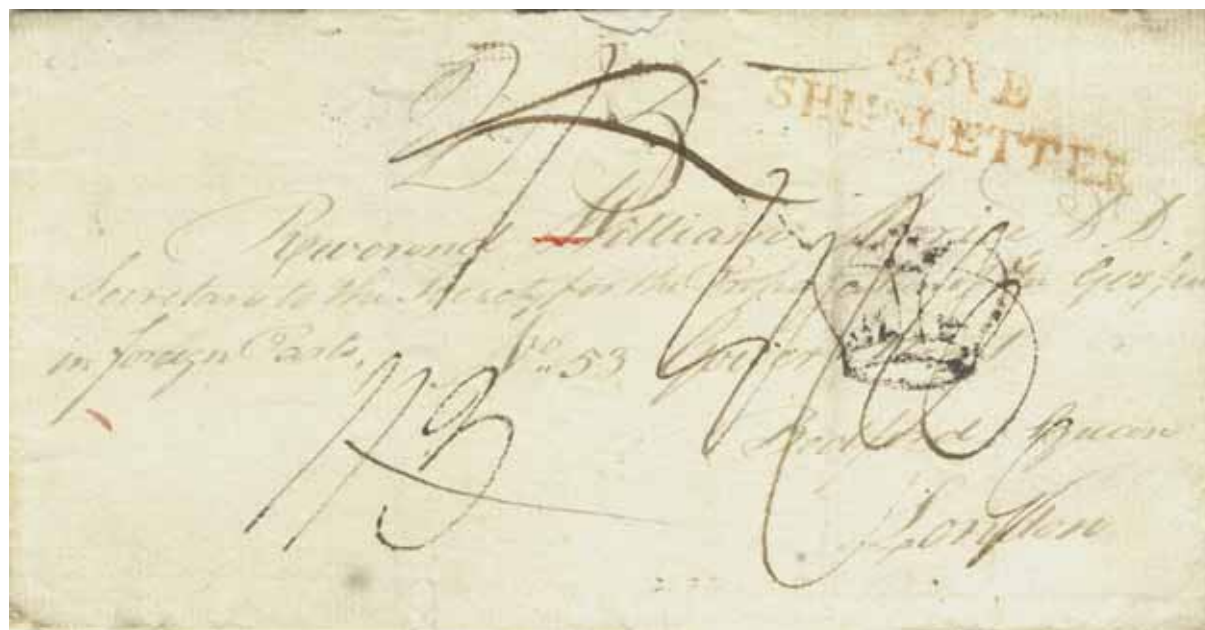 COVE
SHIP LETTER
Reverend William Morice D.D.
Secretary to the Society for the Propagation of the Gospel
in foreign Parts, No. 53 Gower
Bedford Square
London